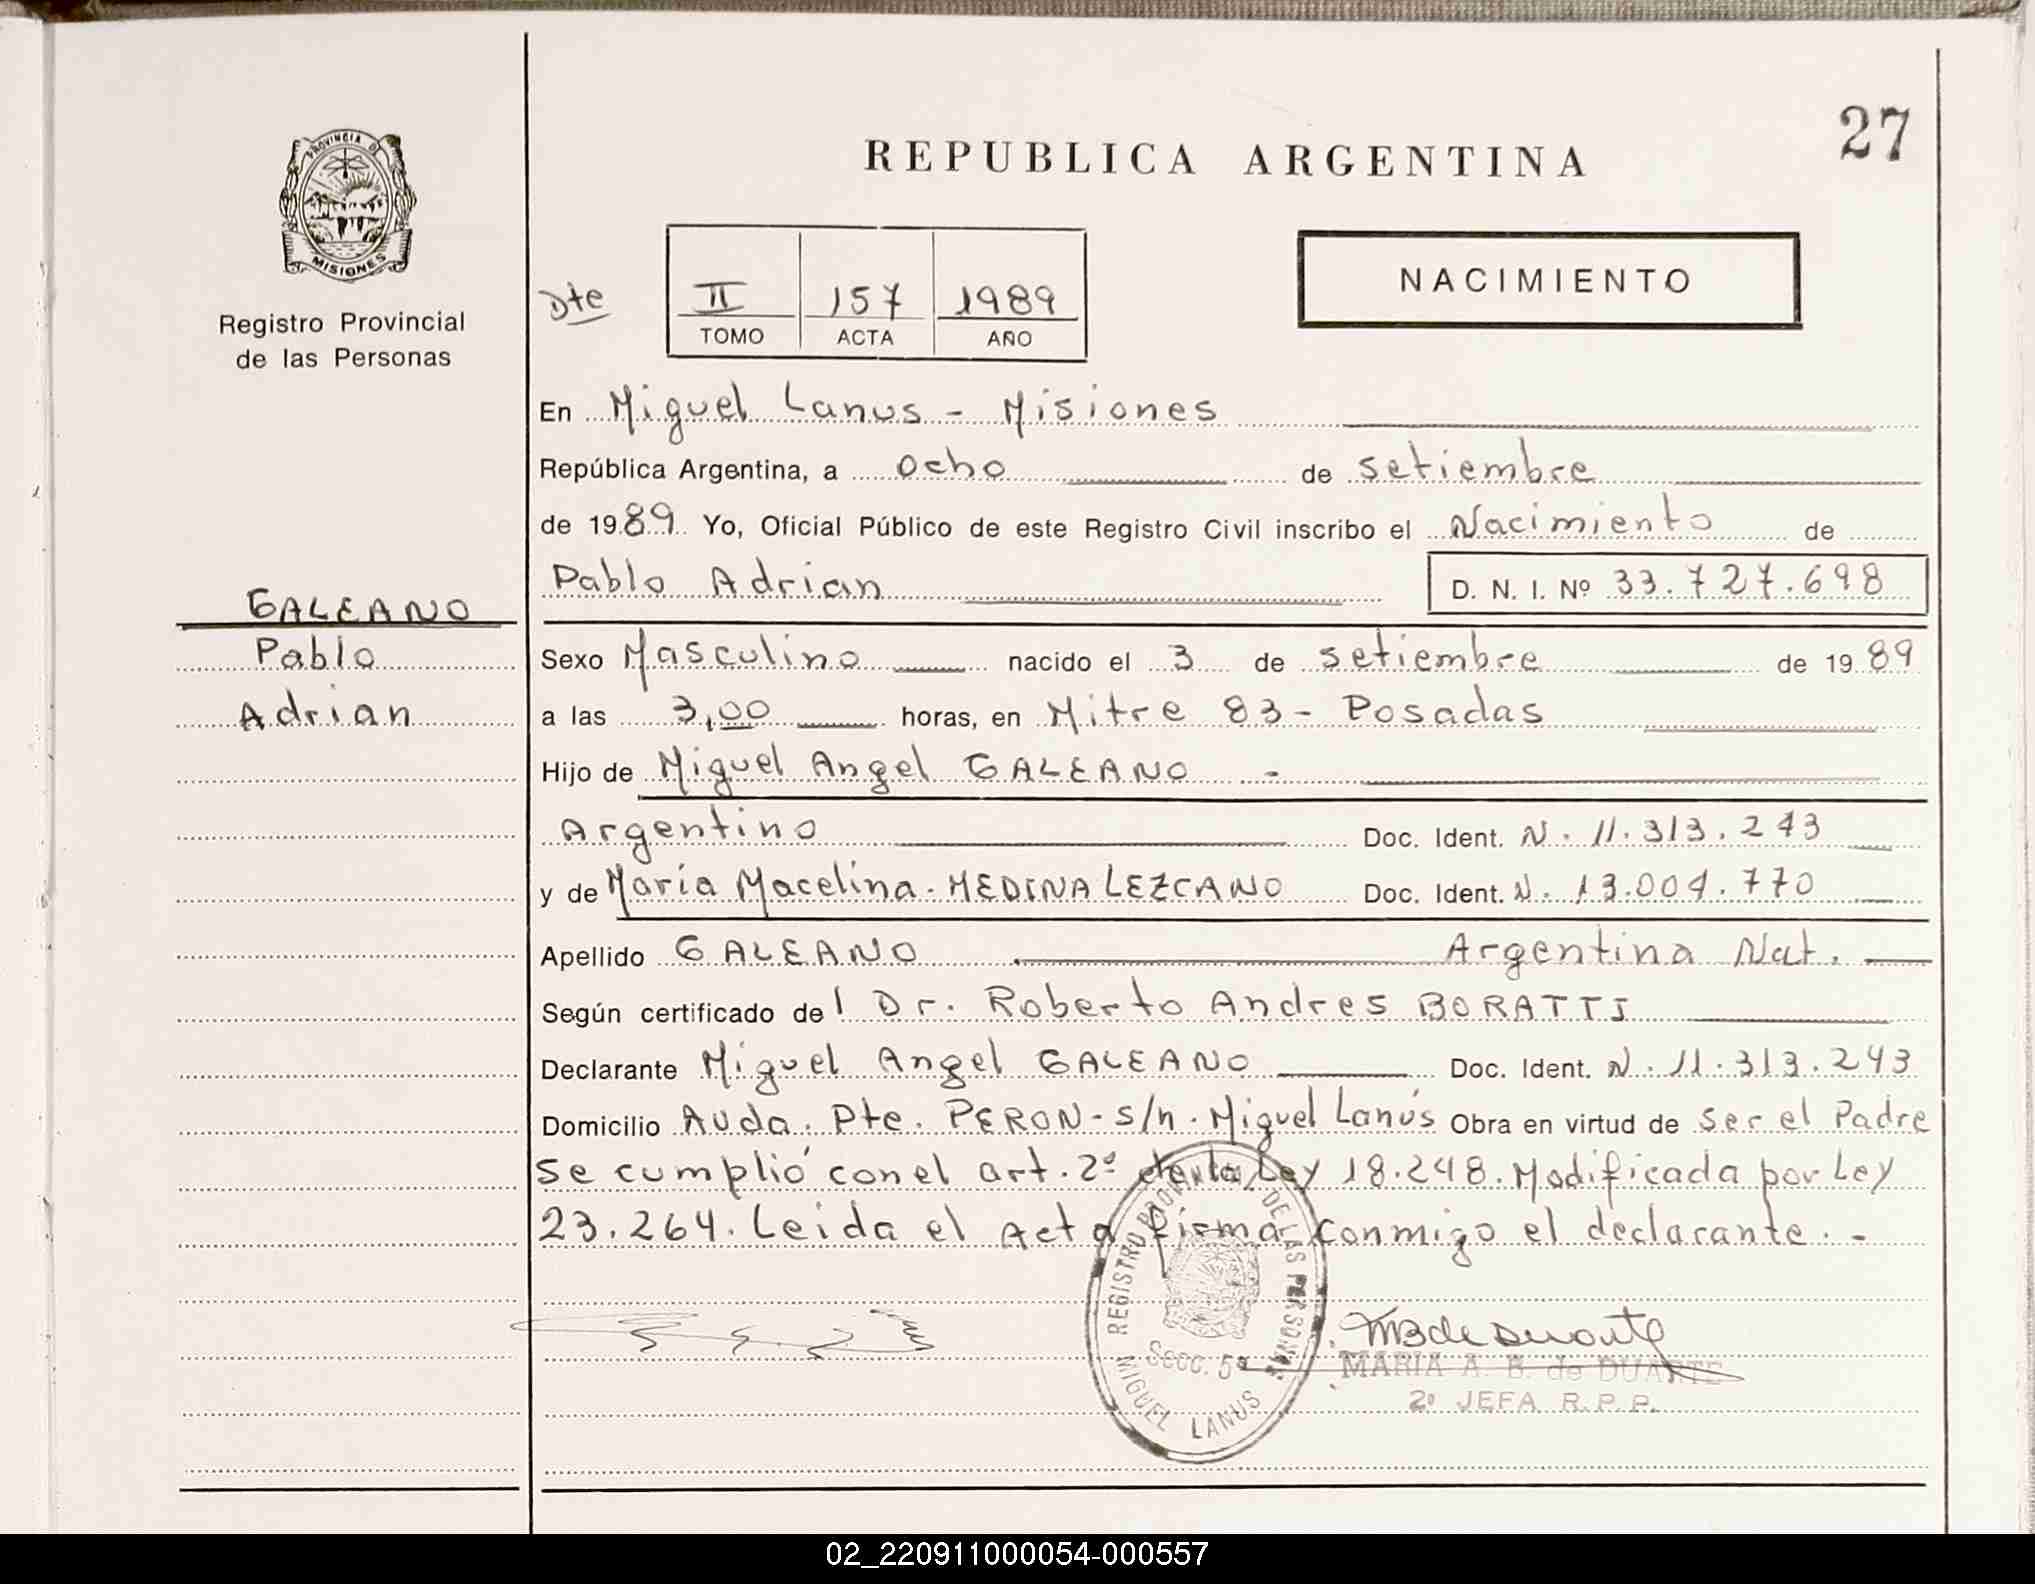 27
REPUBLICA ARGENTINA
PROVINCIA D
MISIONES
Registro Provincial
de las Personas
Dte
II 157 1989
TOMO ACTA AÑO
NACIMIENTO
En Miguel Lanus - Misiones
República Argentina, a ocho de setiembre
de 1989 Yo, Oficial Público de este Registro Civil inscribo el Nacimiento de
Pablo Adrian D. N. I. Nº 33.727.698
GALEANO
Pablo
Adrian
Sexo Masculino nacido el 3 de setiembre de 1989
a las 3,00 horas, en Mitre 83 - Posadas
Hijo de Miguel Angel GALEANO -
Argentino Doc. Ident. N. 11.313.243
y de María Macelina. MEDINA LEZCANO Doc. Ident. N. 13.004.770
Apellido GALEANO Argentina Nat.
Según certificado del Dr. Roberto Andres BORATTI
Declarante Miguel Angel GALEANO Doc. Ident. N. 11.313.243
Domicilio Avda. Pte. PERON - s/n. Miguel Lanús Obra en virtud de ser el Padre
se cumplió con el art. 2º de la Ley 18.248. Modificada por Ley
23.264. Leida el Acta firma conmigo el declarante. -
REGISTRO PROVINCIAL DE LAS PERSONAS
Secc. 5a
MIGUEL LANUS
MBdeDuarte
MARIA A. B. de DUARTE
2º JEFA R.P.P.
02_220911000054-000557